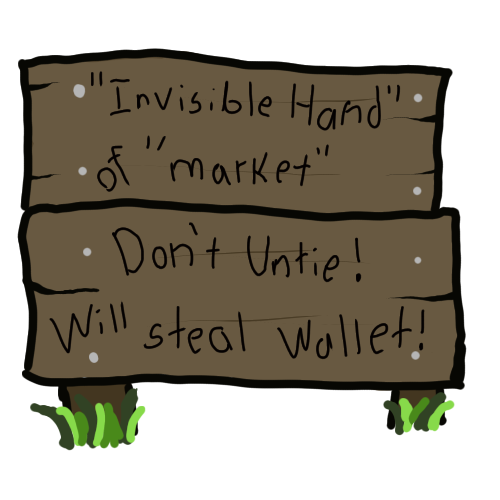 "Invisible Hand"
of "market"
Don't Untie!
Will steal Wallet!